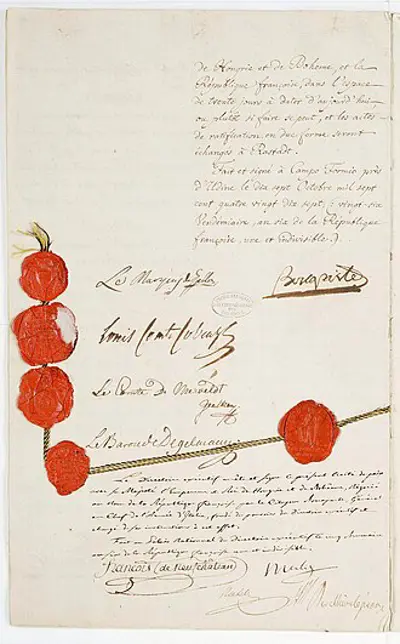 de Hongrie et de Boheme, et la
République françoise, dans l'espace
de trente jours à dater d'aujourd'hui,
ou plutôt si faire se peut, et les actes
de ratification en due forme seront
échangés à Rastadt.
Fait et signé à Campo Formio près
d'Udine le dix sept Octobre mil sept
cent quatre vingt dix sept; vingt-six
Vendémiaire, an six de la République
françoise, une et indivisible.
Le Marquis de Gallo
Bonaparte
Louis Comte Cobenzl
Le Comte de Merveldt
Le Baron de Degelmann
Le Directoire exécutif arrête et signe le présent traité de paix
avec sa Majesté l'Empereur et Roi de Hongrie et de Bohême, négocié
au nom de la République française par le Citoyen Bonaparte, Général
en Chef de l'Armée d'Italie, fondé de pouvoirs du directoire exécutif et
chargé de ses instructions à cet effet.
Fait au Palais National du Directoire exécutif le cinq Brumaire
an six de la République française une et indivisible.
François (de neufchateau)
Merlin